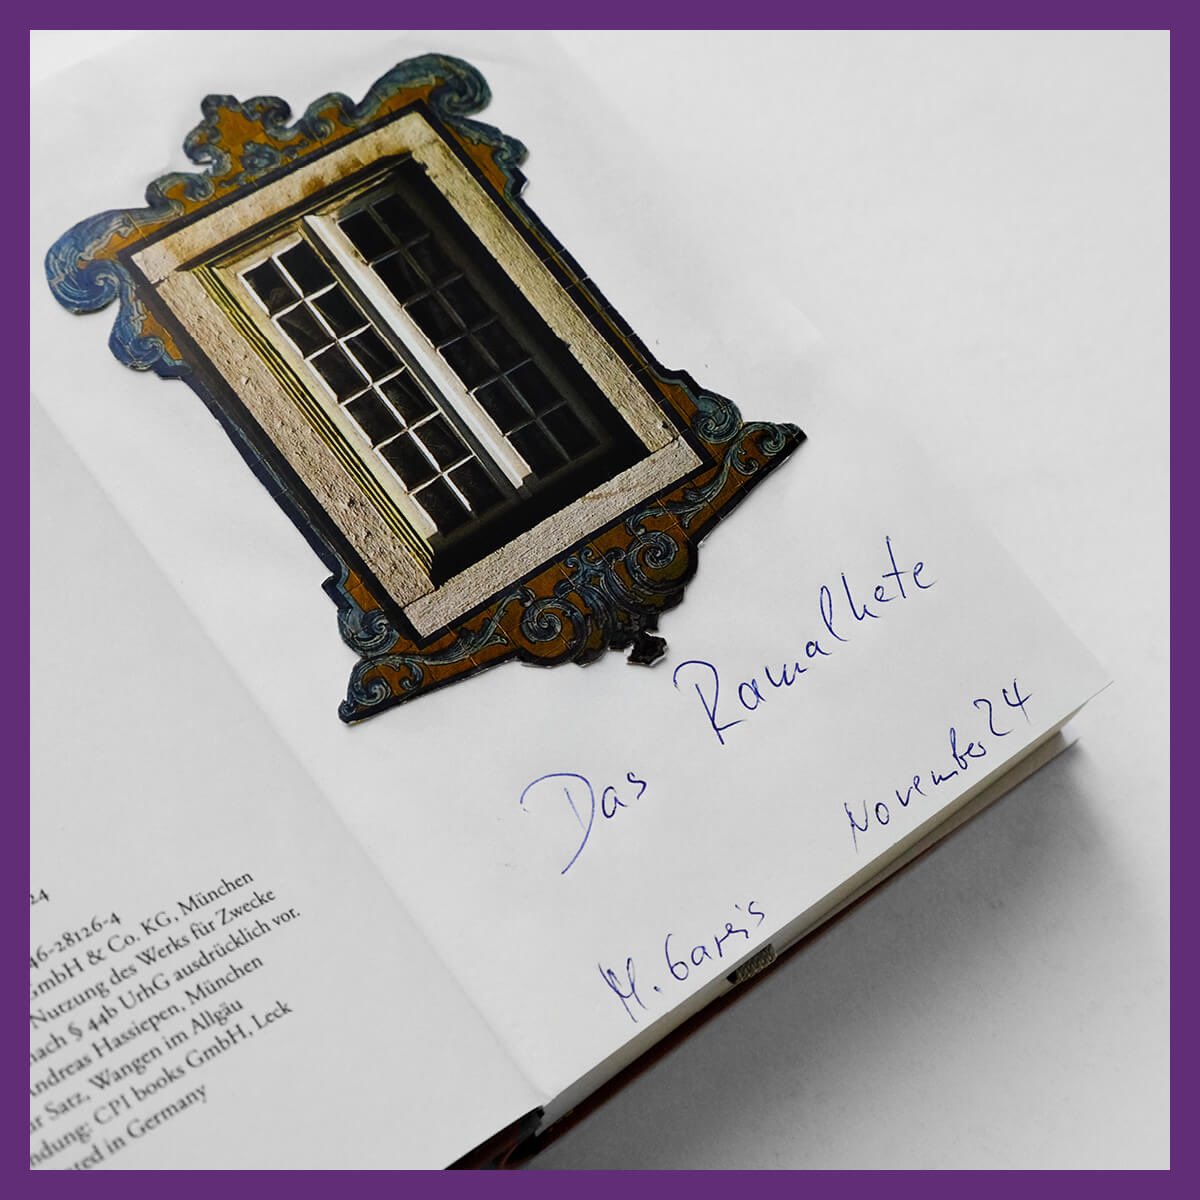 24
46-28126-4
GmbH & Co. KG, München
Nutzung des Werks für Zwecke
nach § 44b UrhG ausdrücklich vor.
Andreas Hassiepen, München
Satz, Wangen im Allgäu
ndung: CPI books GmbH, Leck
ted in Germany
Das Ramalhete
November 24
M. Gareis